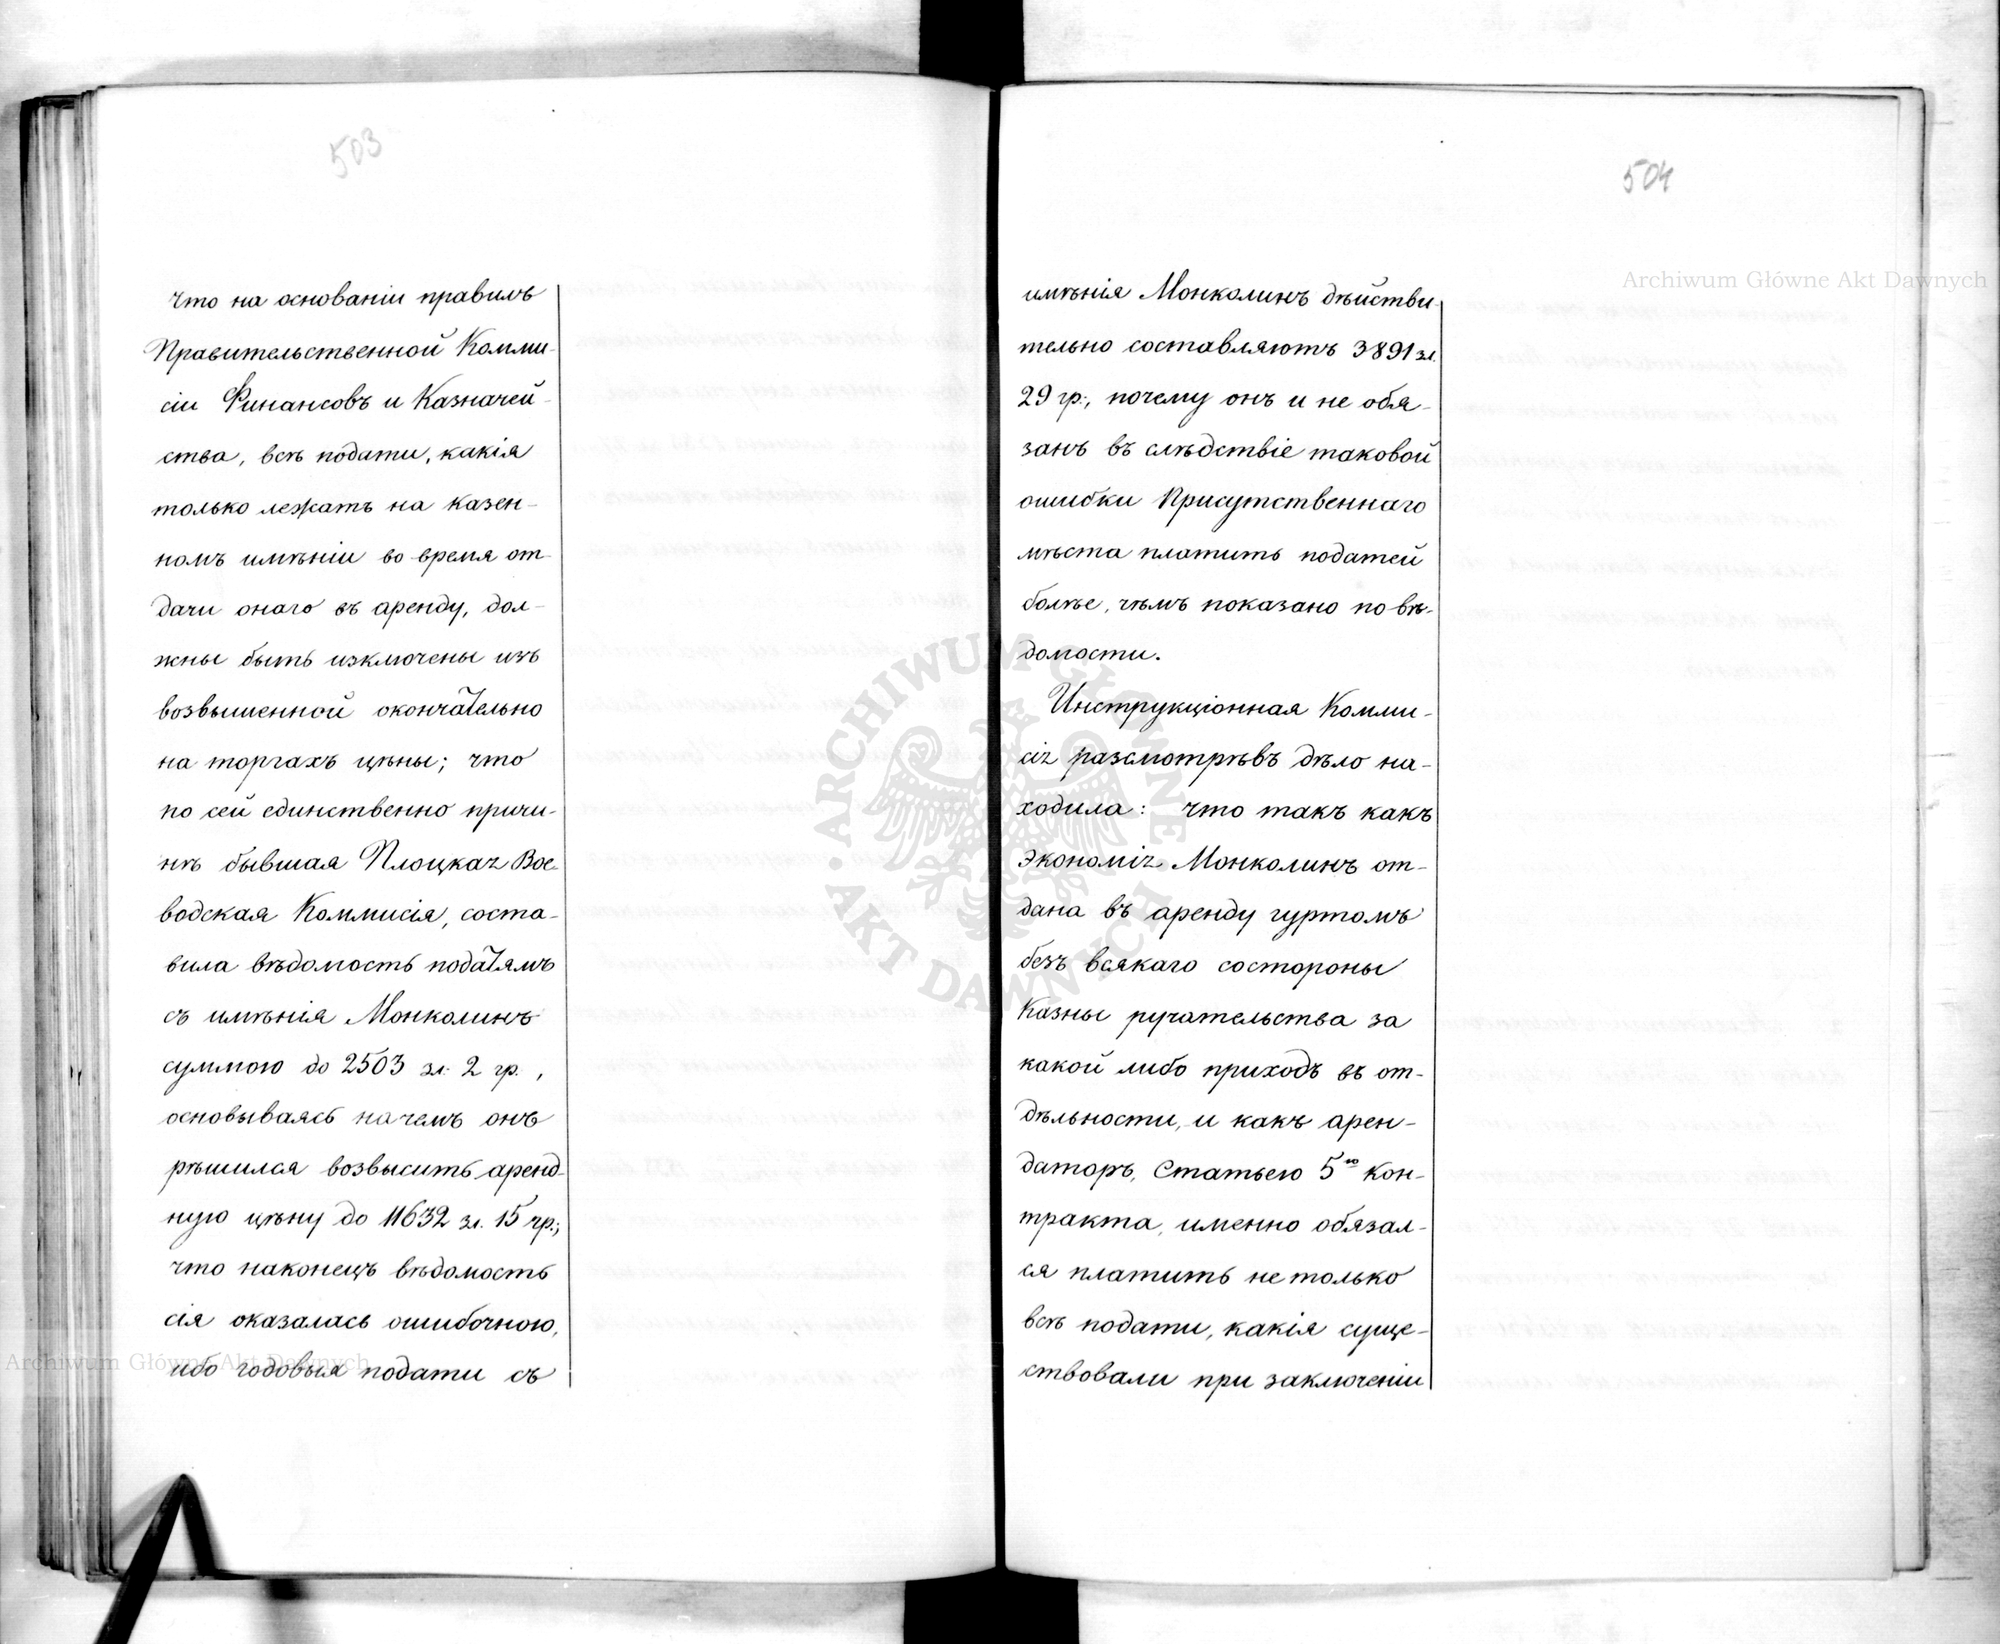 503
что на основаніи правилъ
Правительственной Комми-
сіи Финансовъ и Казначей-
ства, всѣ подати, какія
только лежатъ на казен-
номъ имѣніи во время от-
дачи онаго въ аренду, дол-
жны быть изключены изъ
возвышенной окончательно
на торгахъ цѣны; что
по сей единственно причи-
нѣ бывшая Плоцкая Вое-
водская Коммисія, соста-
вила вѣдомость податямъ
съ имѣнія Монколинъ
суммою до 2503 зл. 2 гр.,
основываясь на чемъ онъ
рѣшился возвысить аренд-
ную цѣну до 11632 зл. 15 гр.;
что наконецъ вѣдомость
сія оказалась ошибочною,
ибо годовыя подати съ
504
имѣнія Монколинъ дѣйстви-
тельно составляютъ 3891 зл.
29 гр., почему онъ и не обя-
занъ въ слѣдствіе таковой
ошибки Присутственнаго
мѣста платить податей
болѣе, чѣмъ показано по вѣ-
домости.
Инструкціонная Комми-
сія разсмотрѣвъ дѣло на-
ходила: что такъ какъ
экономія Монколинъ от-
дана въ аренду гуртомъ
безъ всякаго состороны
Казны ручательства за
какой либо приходъ въ от-
дѣльности, и какъ арен-
даторъ, Статьею 5ю кон-
тракта, именно обязал-
ся платить не только
всѣ подати, какія суще-
ствовали при заключеніи
Archiwum Główne Akt Dawnych
Archiwum Główne Akt Dawnych
ARCHIWUM GŁÓWNE AKT DAWNYCH